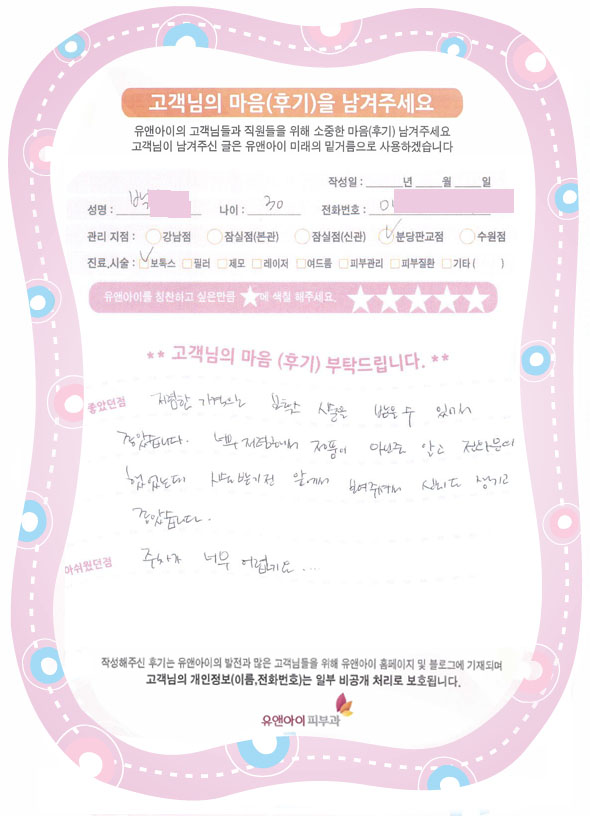 고객님의 마음(후기)을 남겨주세요
유앤아이의 고객님들과 직원들을 위해 소중한 마음(후기) 남겨주세요
고객님이 남겨주신 글은 유앤아이 미래의 밑거름으로 사용하겠습니다
작성일 : 년 월 일
성명 : 박 나이 : 30 전화번호 : 0
관리 지점 : 강남점 잠실점(본관) 잠실점(신관) 분당판교점 수원점
진료,시술 : 보톡스 필러 제모 레이저 여드름 피부관리 피부질환 기타 ( )
유앤아이를 칭찬하고 싶은만큼 ★에 색칠 해주세요. ★★★★★
** 고객님의 마음 (후기) 부탁드립니다. **
좋았던점 저렴한 가격으로 보톡스 시술을 받을 수 있어서
좋았습니다. 너무 저렴해서 제품이 아닌줄 알고
했었는데 시술받기전 앞에서 보여주셔서 신뢰도 생기고
좋았습니다.
아쉬웠던점 주차가 너무 어렵네요...
작성해주신 후기는 유앤아이의 발전과 많은 고객님들을 위해 유앤아이 홈페이지 및 블로그에 기재되며
고객님의 개인정보(이름,전화번호)는 일부 비공개 처리로 보호됩니다.
유앤아이피부과